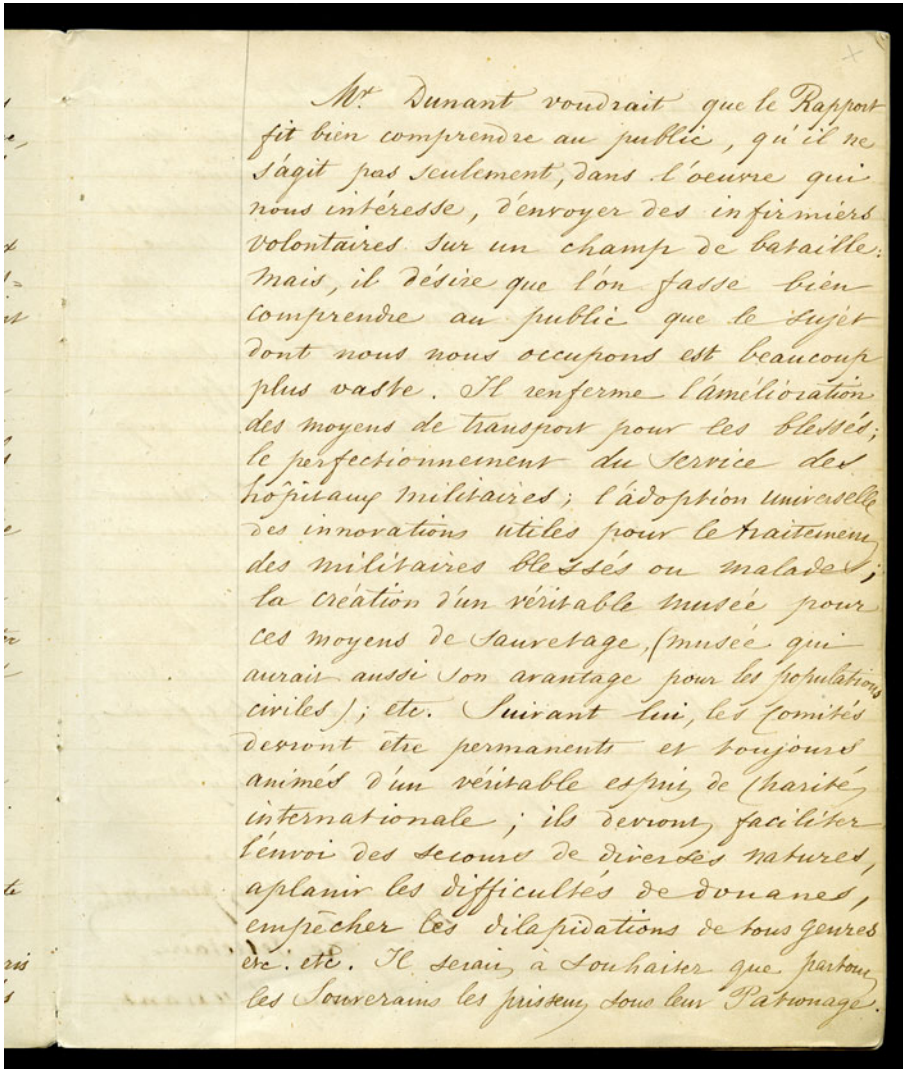 Mr. Dunant voudrait que le Rapport
fit bien comprendre au public, qu'il ne
s'agit pas seulement, dans l'oeuvre qui
nous intéresse, d'envoyer des infirmiers
volontaires sur un champ de bataille:
mais, il désire que l'on fasse bien
comprendre au public que le sujet
dont nous nous occupons est beaucoup
plus vaste. Il renferme l'amélioration
des moyens de transport pour les blessés;
le perfectionnement du service des
hôpitaux militaires; l'adoption universelle
des innovations utiles pour le traitement
des militaires blessés ou malades;
la création d'un véritable musée pour
ces moyens de sauvetage, (musée qui
aurait aussi son avantage pour les populations
civiles); etc. Suivant lui, les Comités
devront être permanents et toujours
animés d'un véritable esprit de Charité
internationale; ils devront faciliter
l'envoi des secours de diverses natures,
aplanir les difficultés de douanes,
empêcher les dilapidations de tous genres
etc. etc. Il serait à souhaiter que partout
les Souverains les prissent sous leur Patronage.